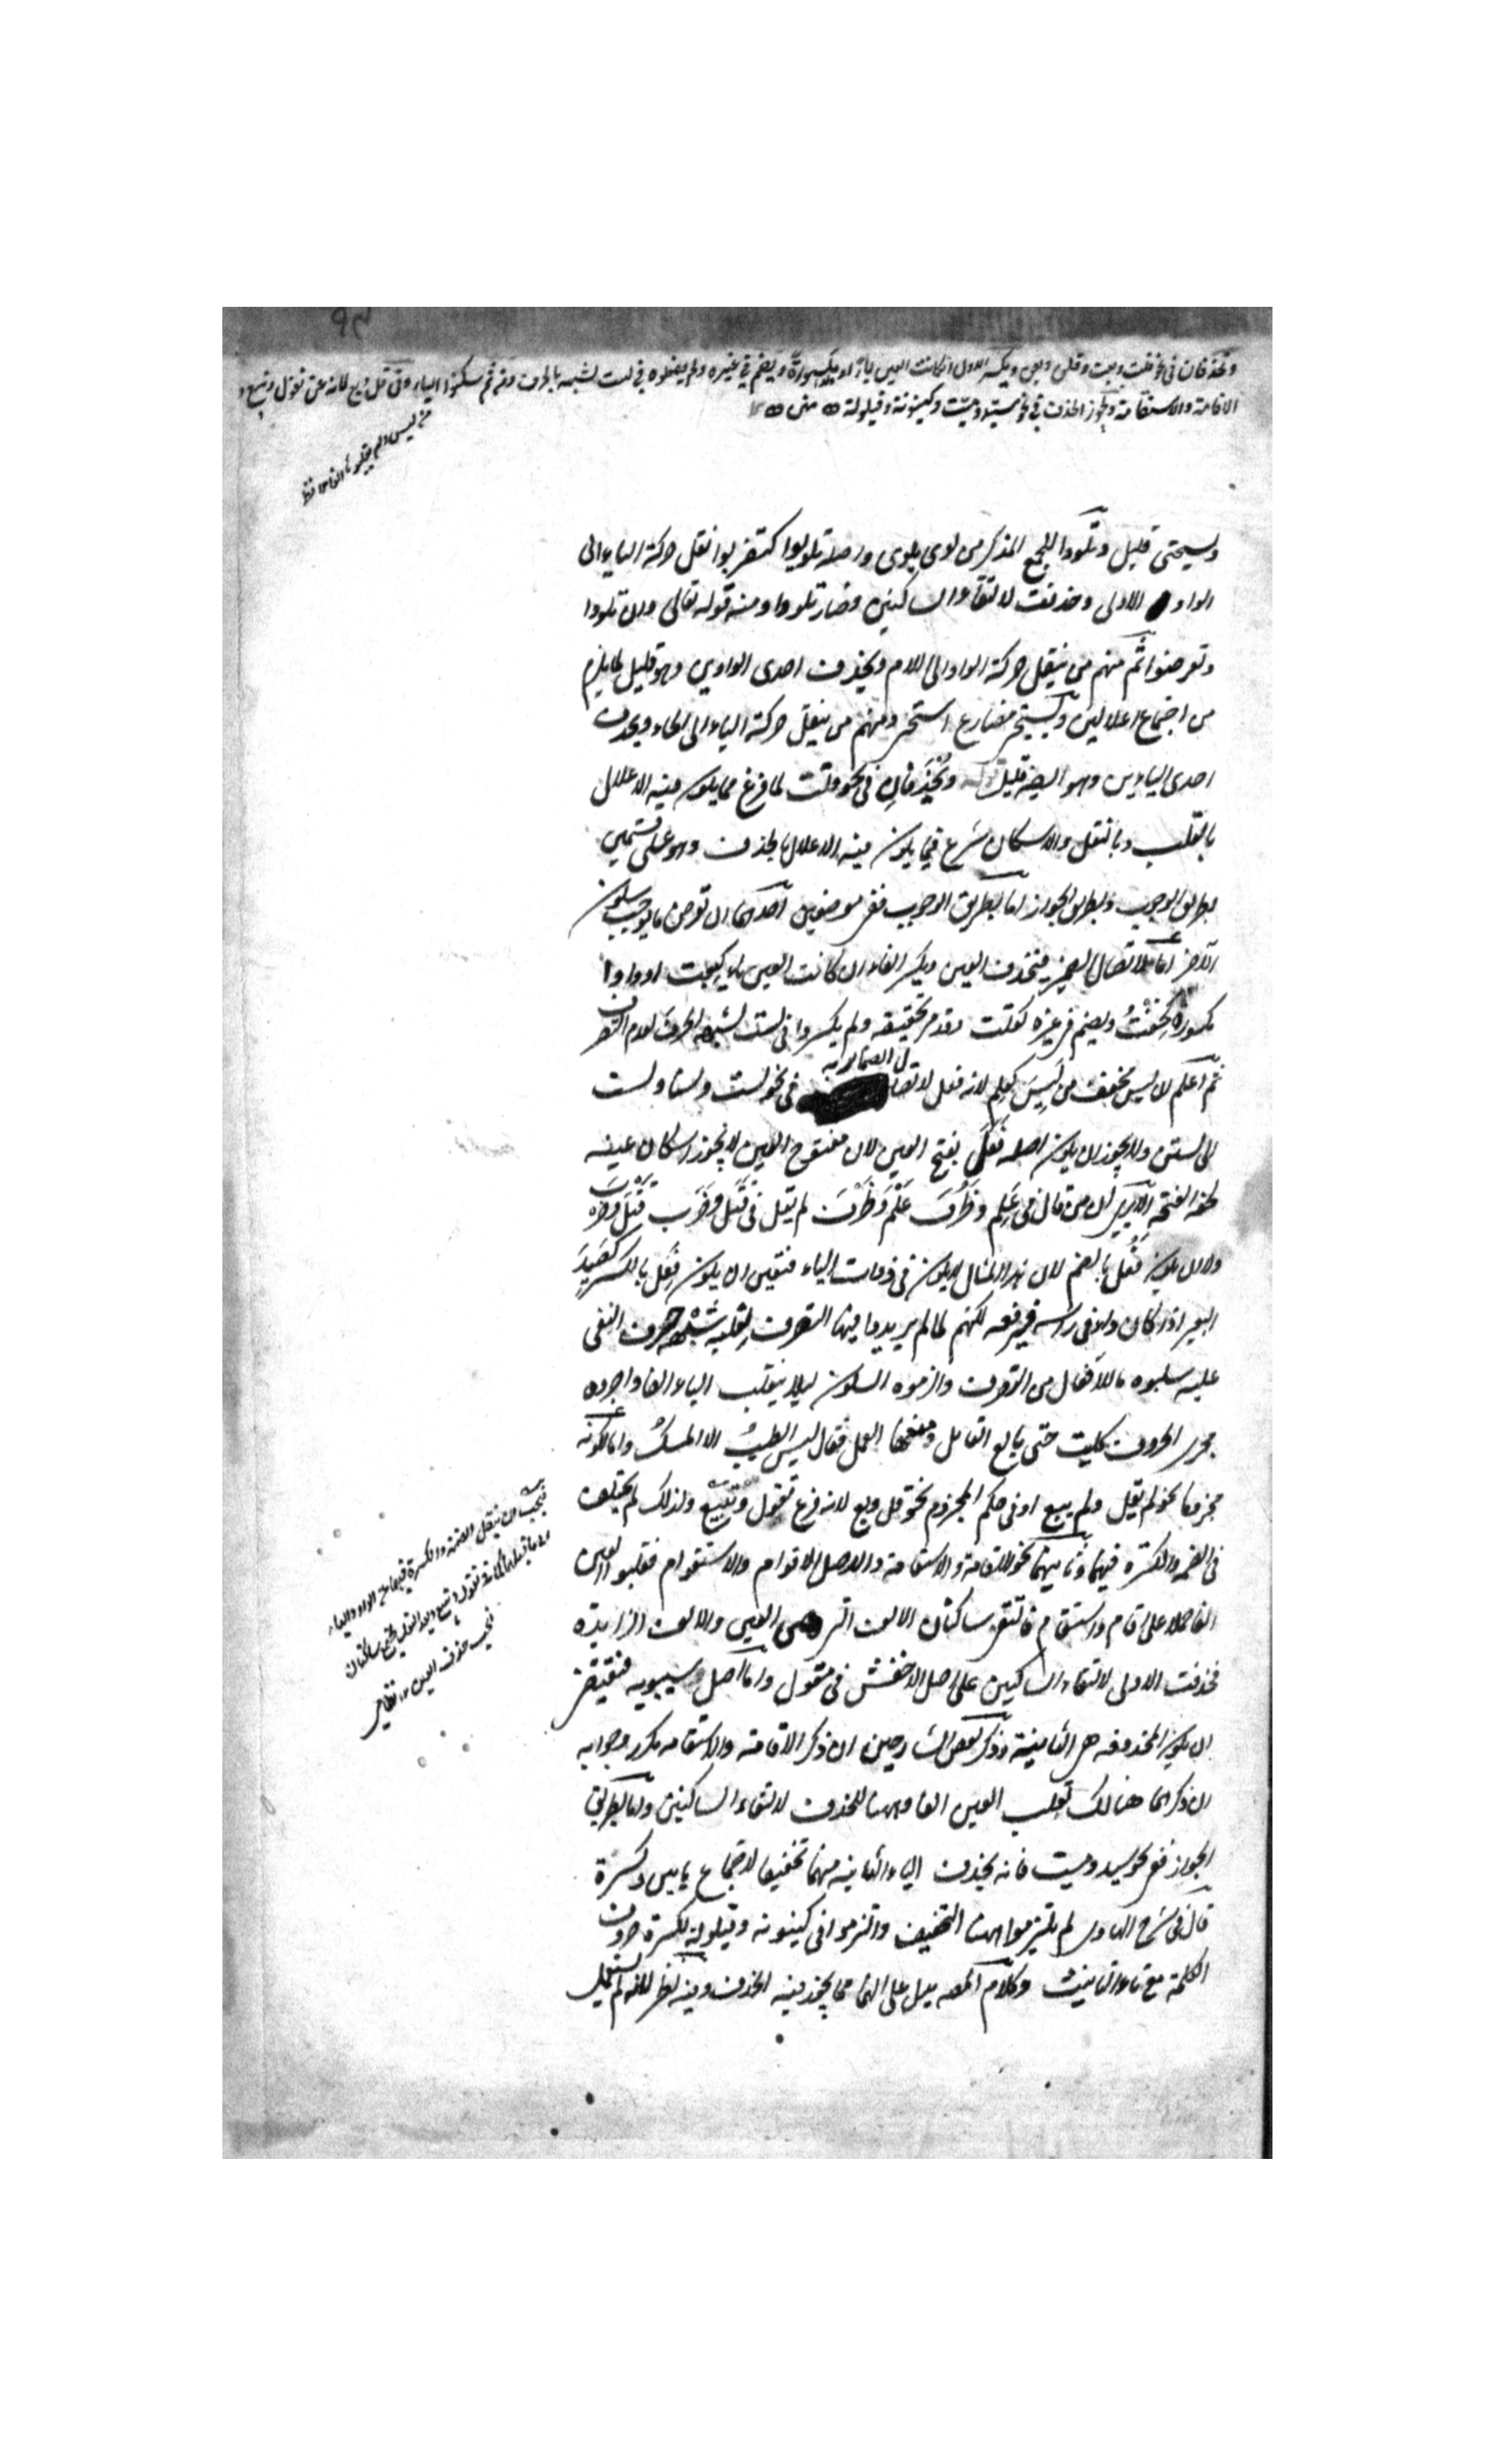 وتحذفان في نحو قلت وبعت وقلن وبعن ويكسر الاول ان كانت العين ياء او مكسورة ويضم في غيره ولم يفعلوه في لست لشبهه بالحرف ومن ثم سكنوا الياء وفي قل وبع لانه عن تقول وتبيع و
الاقامة والاستقامة ويجوز الحذف في نحو سيد وميت وكينونة وقيلولة متن
ويستحيي قليل وتلووا للجمع المذكر من لوى يلوي واصله تلويوا كتضربوا نقل حركة الياء الى
الواو الاولى وحذفت لالتقاء الساكنين وصار تلووا ومنه قوله تعالى وان تلووا
وتعرضوا ثم منهم من ينقل حركة الواو الى اللام ويحذف احدى الواوين وهو قليل لما يلزم
من اجتماع اعلالين ويستحي مضارع استحي ومنهم من ينقل حركة الياء الى الحاء ويحذف
احدى الياءين وهو ايضا قليل وتحذفان في نحو قلت لما فرغ مما يكون فيه الاعلال
بالقلب وبالنقل والاسكان شرع فيما يكون فيه الاعلال بالحذف وهو على قسمين
بطريق الوجوب وبطريق الجواز اما بطريق الوجوب ففي موضعين احدهما ان توجد ما يوجب سكون
الآخر اما لاتصال الضمير فتحذف العين ويكسر الفاء ان كانت العين ياء كبعت او واوا
مكسورة كخفت ويضم في غيره كقلت وقدم تحقيقه ولم يكسروا في لست لشبهه الحرف لعدم التصرف
ثم اعلم ان ليس مخفف من ليس كعلم لانه فعل لاتصال الضمائر به في نحو لست ولسنا ولست
الى لستن ولا يجوز ان يكون اصله فعل بفتح العين لان مفتوح العين لا يجوز اسكان عينه
لخفة الفتحة الا ترى ان من قال في علم وظرف علم وظرف لم يقل في قتل وضرب قتل وضرب
ولا ان يكون فعل بالضم لان هذا المثال لا يكون في ذوات الياء فتعين ان يكون فعل بالكسر كصيد
البعير اذا كان داء في راسه فيرفعه لكنهم لما لم يريدوا فيها التصرف لغلبة شبه حرف النفي
عليه سلبوه ما للافعال من التصرف والزموه السكون ليلا ينقلب الياء الفا واجروه
مجرى الحروف كليت حتى بالغ القائل ومنعها العمل فقال ليس الطيب الا المسك واما لكونه
مجزوما نحو لم يقل ولم يبع او في حكم المجزوم نحو قل وبع لانه فرع تقول وتبيع ولذلك لم يختلف
في الضمة والكسرة فيهما وثانيهما نحو الاقامة والاستقامة والاصل الاقوام والاستقوام فقلبوا العين
الفا حملا على اقام واستقام فالتقى ساكنان الالف التي هي العين والالف الزايدة
فحذفت الاولى لالتقاء الساكنين على اصل الاخفش في مقول واما اصل سيبويه فتقتضي
ان يكون المحذوفة هي الثانية وذكر بعض الشارحين ان ذكر الاقامة والاستقامة مكرر وجوابه
ان ذكرهما هنالك لقلب العين الفا وههنا للحذف لالتقاء الساكنين واما بطريق
الجواز ففي نحو سيد وميت فانه يحذف الياء الثانية منهما تخفيفا لاجتماع يايين وكسرة
قال في شرح الهادي لم يلتزموا ههنا التخفيف والتزموا في كينونة وقيلولة لكثرة حروف
الكلمة مع تاء التانيث وكلام المصـ يدل على انهما مما يجوز فيه الحذف وفيه نظر لانه لم يستعمل
فيجب ان ينقل الضمة والكسرة فيهما من الواو والياء
نحو حذف العين